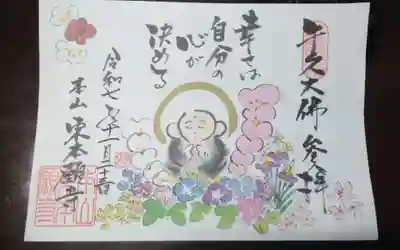 牛久大佛参拝
幸せは
自分の
心が
決める
令和七年十一月三日
本山東本願寺